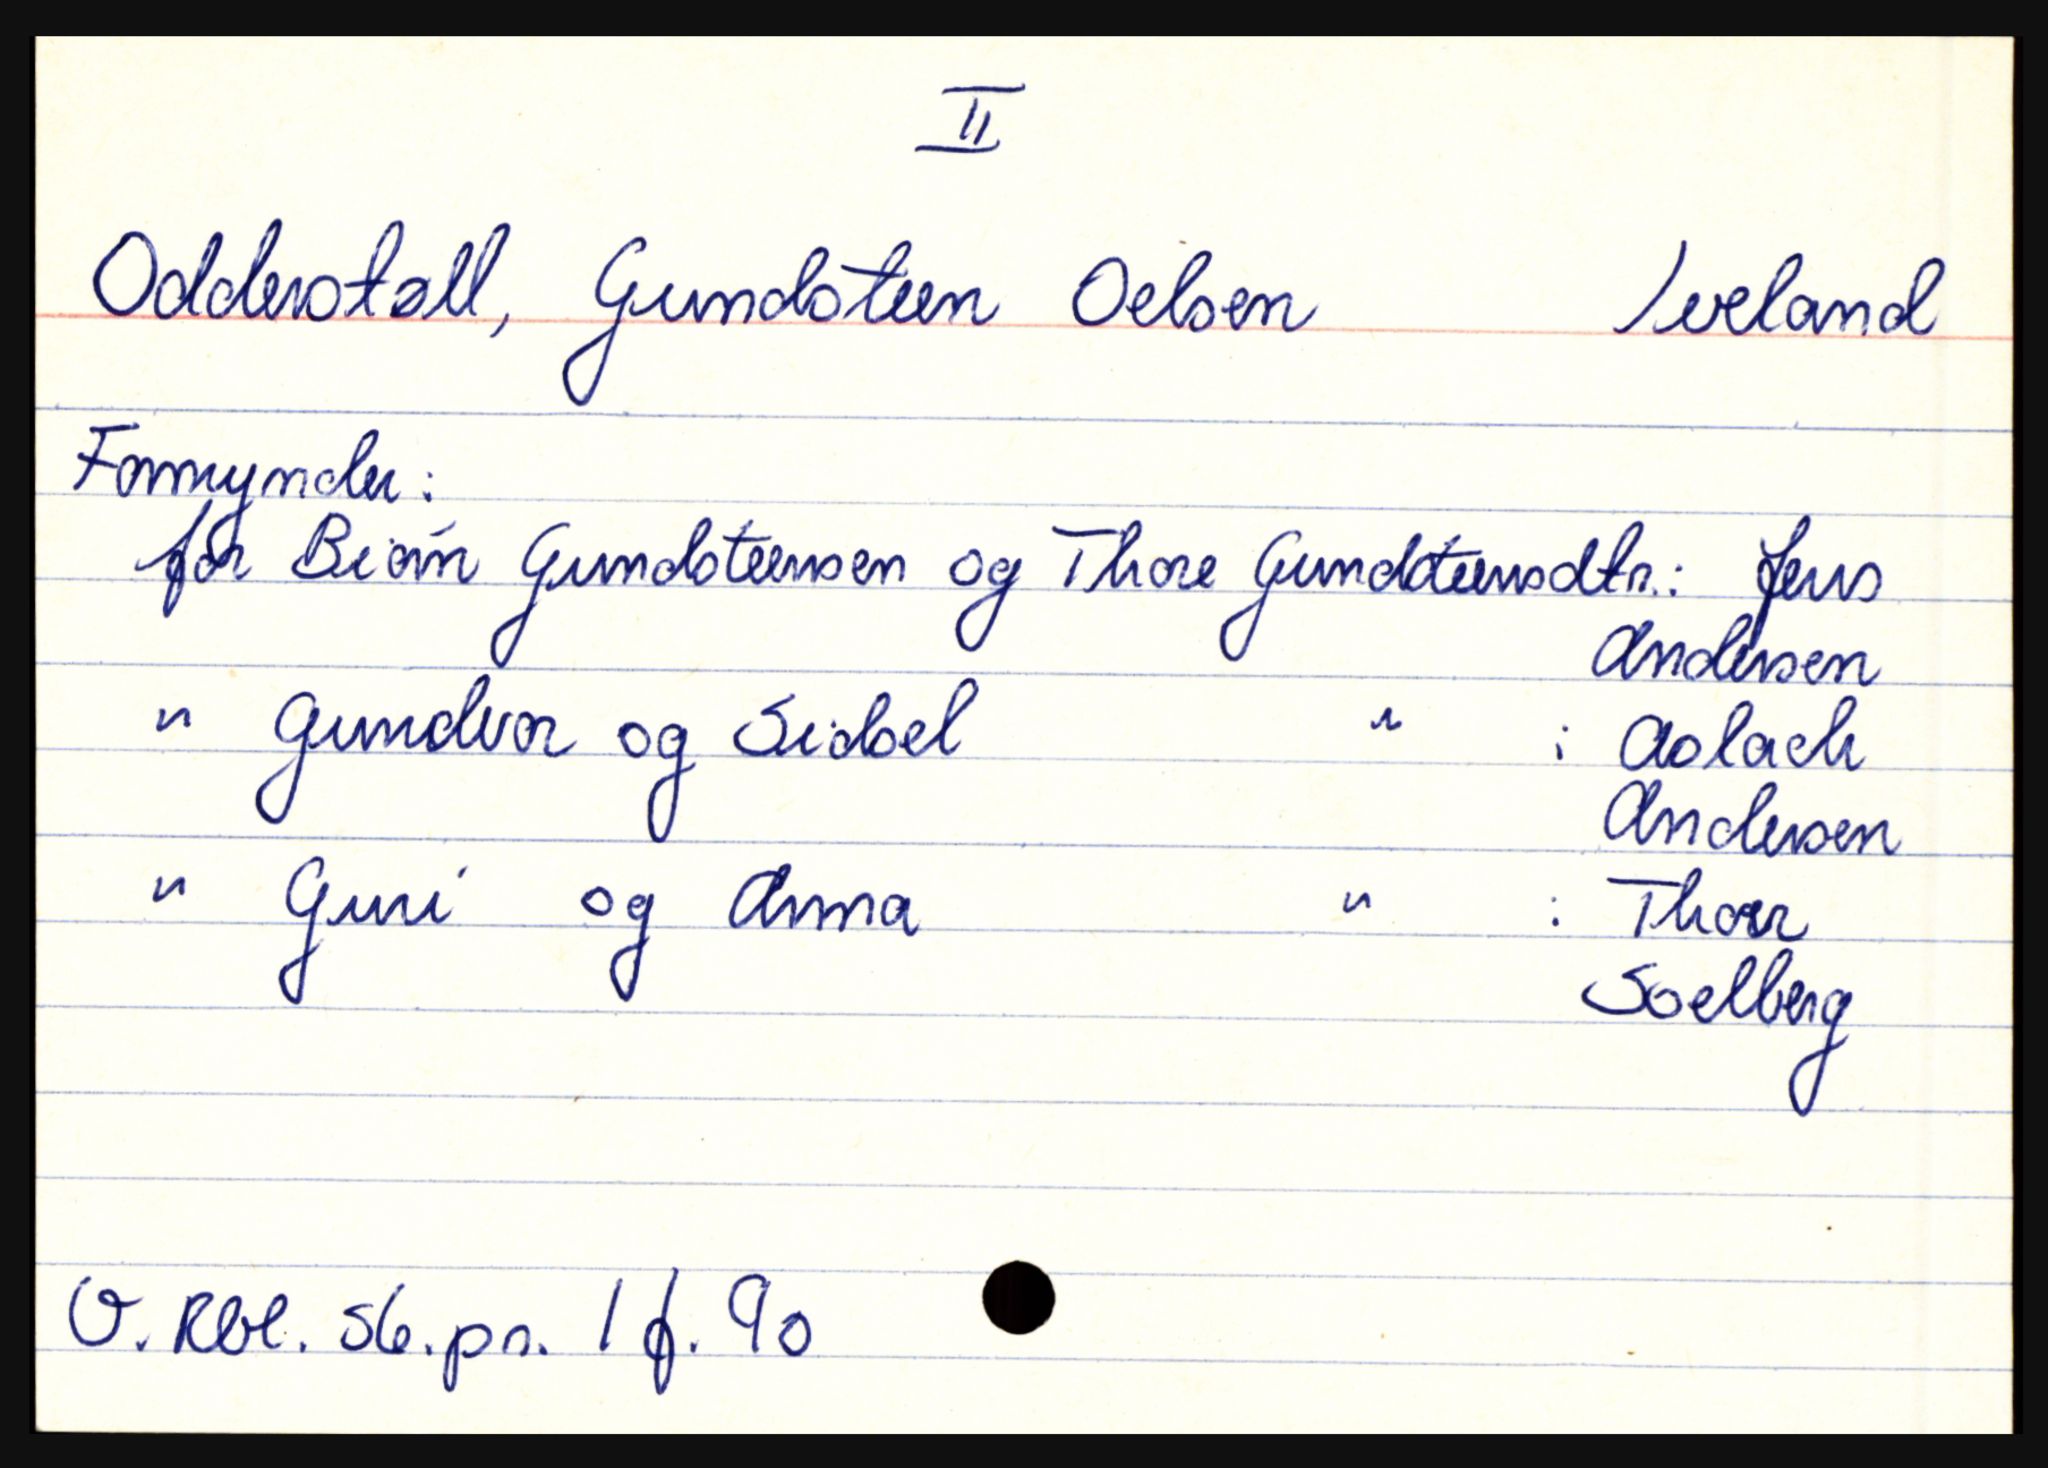 II
Odderstøll, Gundsteen Oelsen Iveland
Formynder:
for Biørn Gundsteensen og Thore Gundsteensdtr.: Jens
Andersen
" Gundvor og Sidsel " : Aslach
Andersen
" Guri og Anna " : Thor
Soelberg
O. Rbl. s6.pr. 1 f. 90